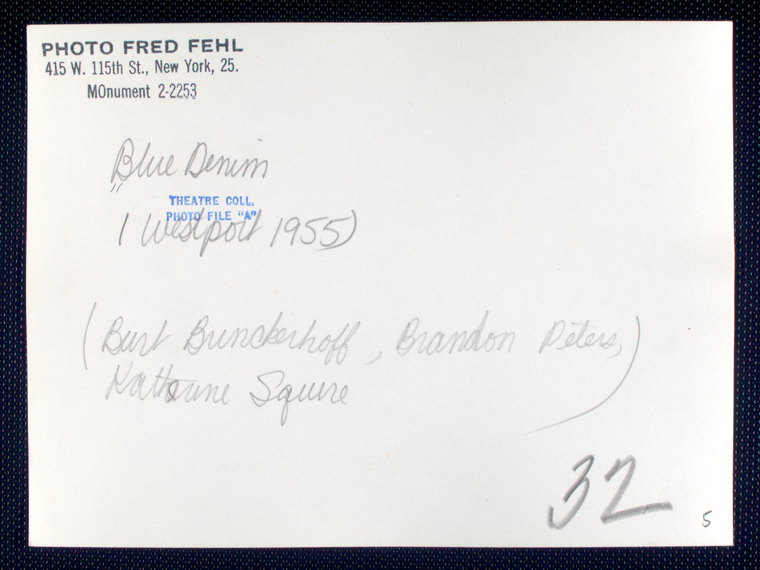 PHOTO FRED FEHL
415 W. 115th St., New York, 25.
MOnument 2-2253
Blue Denim
"
THEATRE COLL.
PHOTO FILE "A"
( Westport 1955)
(Burt Brinckerhoff, Brandon Peters,
Katherine Squire)
32
5